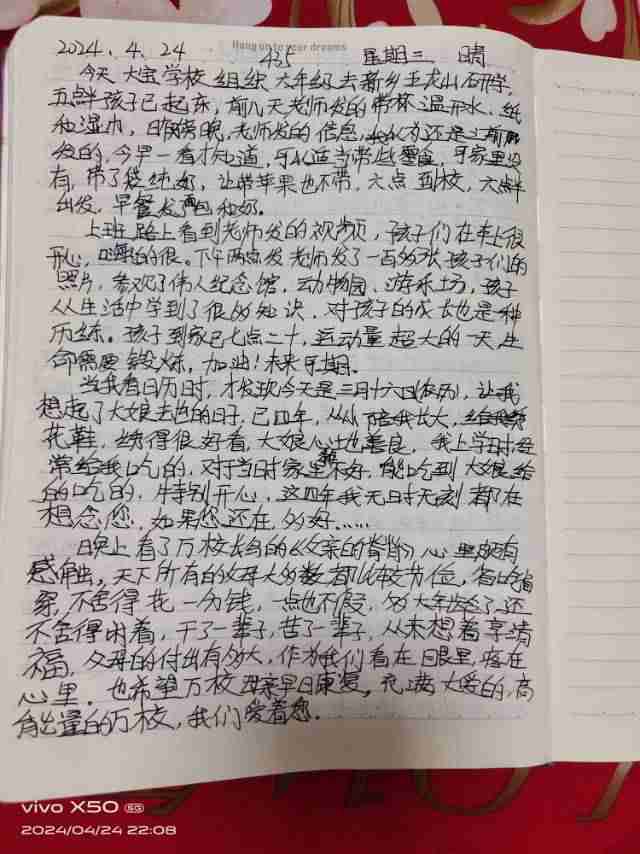 Hang on to your dreams
2024.4.24 435 星期三 晴
今天大宝学校组织六年级去新乡五龙山研学,
五点半孩子已起床,前几天老师发的带杯温开水、纸
和湿巾,昨天傍晚,老师发的信息,我以为还是之前
发的,今早一看才知道,可以适当带些零食,可家里没
有,带了袋纯奶,让带苹果也不带,六点到校,六点半
出发,早餐发面包和奶。
上班路上看到老师发的视频,孩子们在车上很
开心,嗨的很。下午两点发老师发了一百多张孩子们的
照片,参观了伟人纪念馆、动物园、游乐场,孩子
从生活中学到了很多知识,对孩子的成长也是一种
历练。孩子到家已七点二十,运动量超大的一天,生
命需要锻炼,加油!未来可期。
当我看日历时,才发现今天是三月十六日(农历),让我
想起了大娘去世的日子,已四年,从小陪我长大,给我绣
花鞋,绣得很好看,大娘心地也善良,我上学时经
常给我吃的,对于当时家里不好,能吃到大娘给
的吃的,特别开心,这四年我无时无刻都在
想念您,如果您还在,多好……
晚上看了万校长的《父亲的脊背》心里颇有
感触,天下所有的父母大多数都比较节俭,省吃俭
穿,不舍得花一分钱,一点也不假,多大年龄了,还
不舍得闲着,干了一辈子,苦了一辈子,从未想着享清
福,父母的付出有多大,作为我们看在眼里,疼在
心里。也希望万校母亲早日康复,充满大爱的,高
能量的万校,我们爱着您。
vivo X50 5G
2024/04/24 22:08